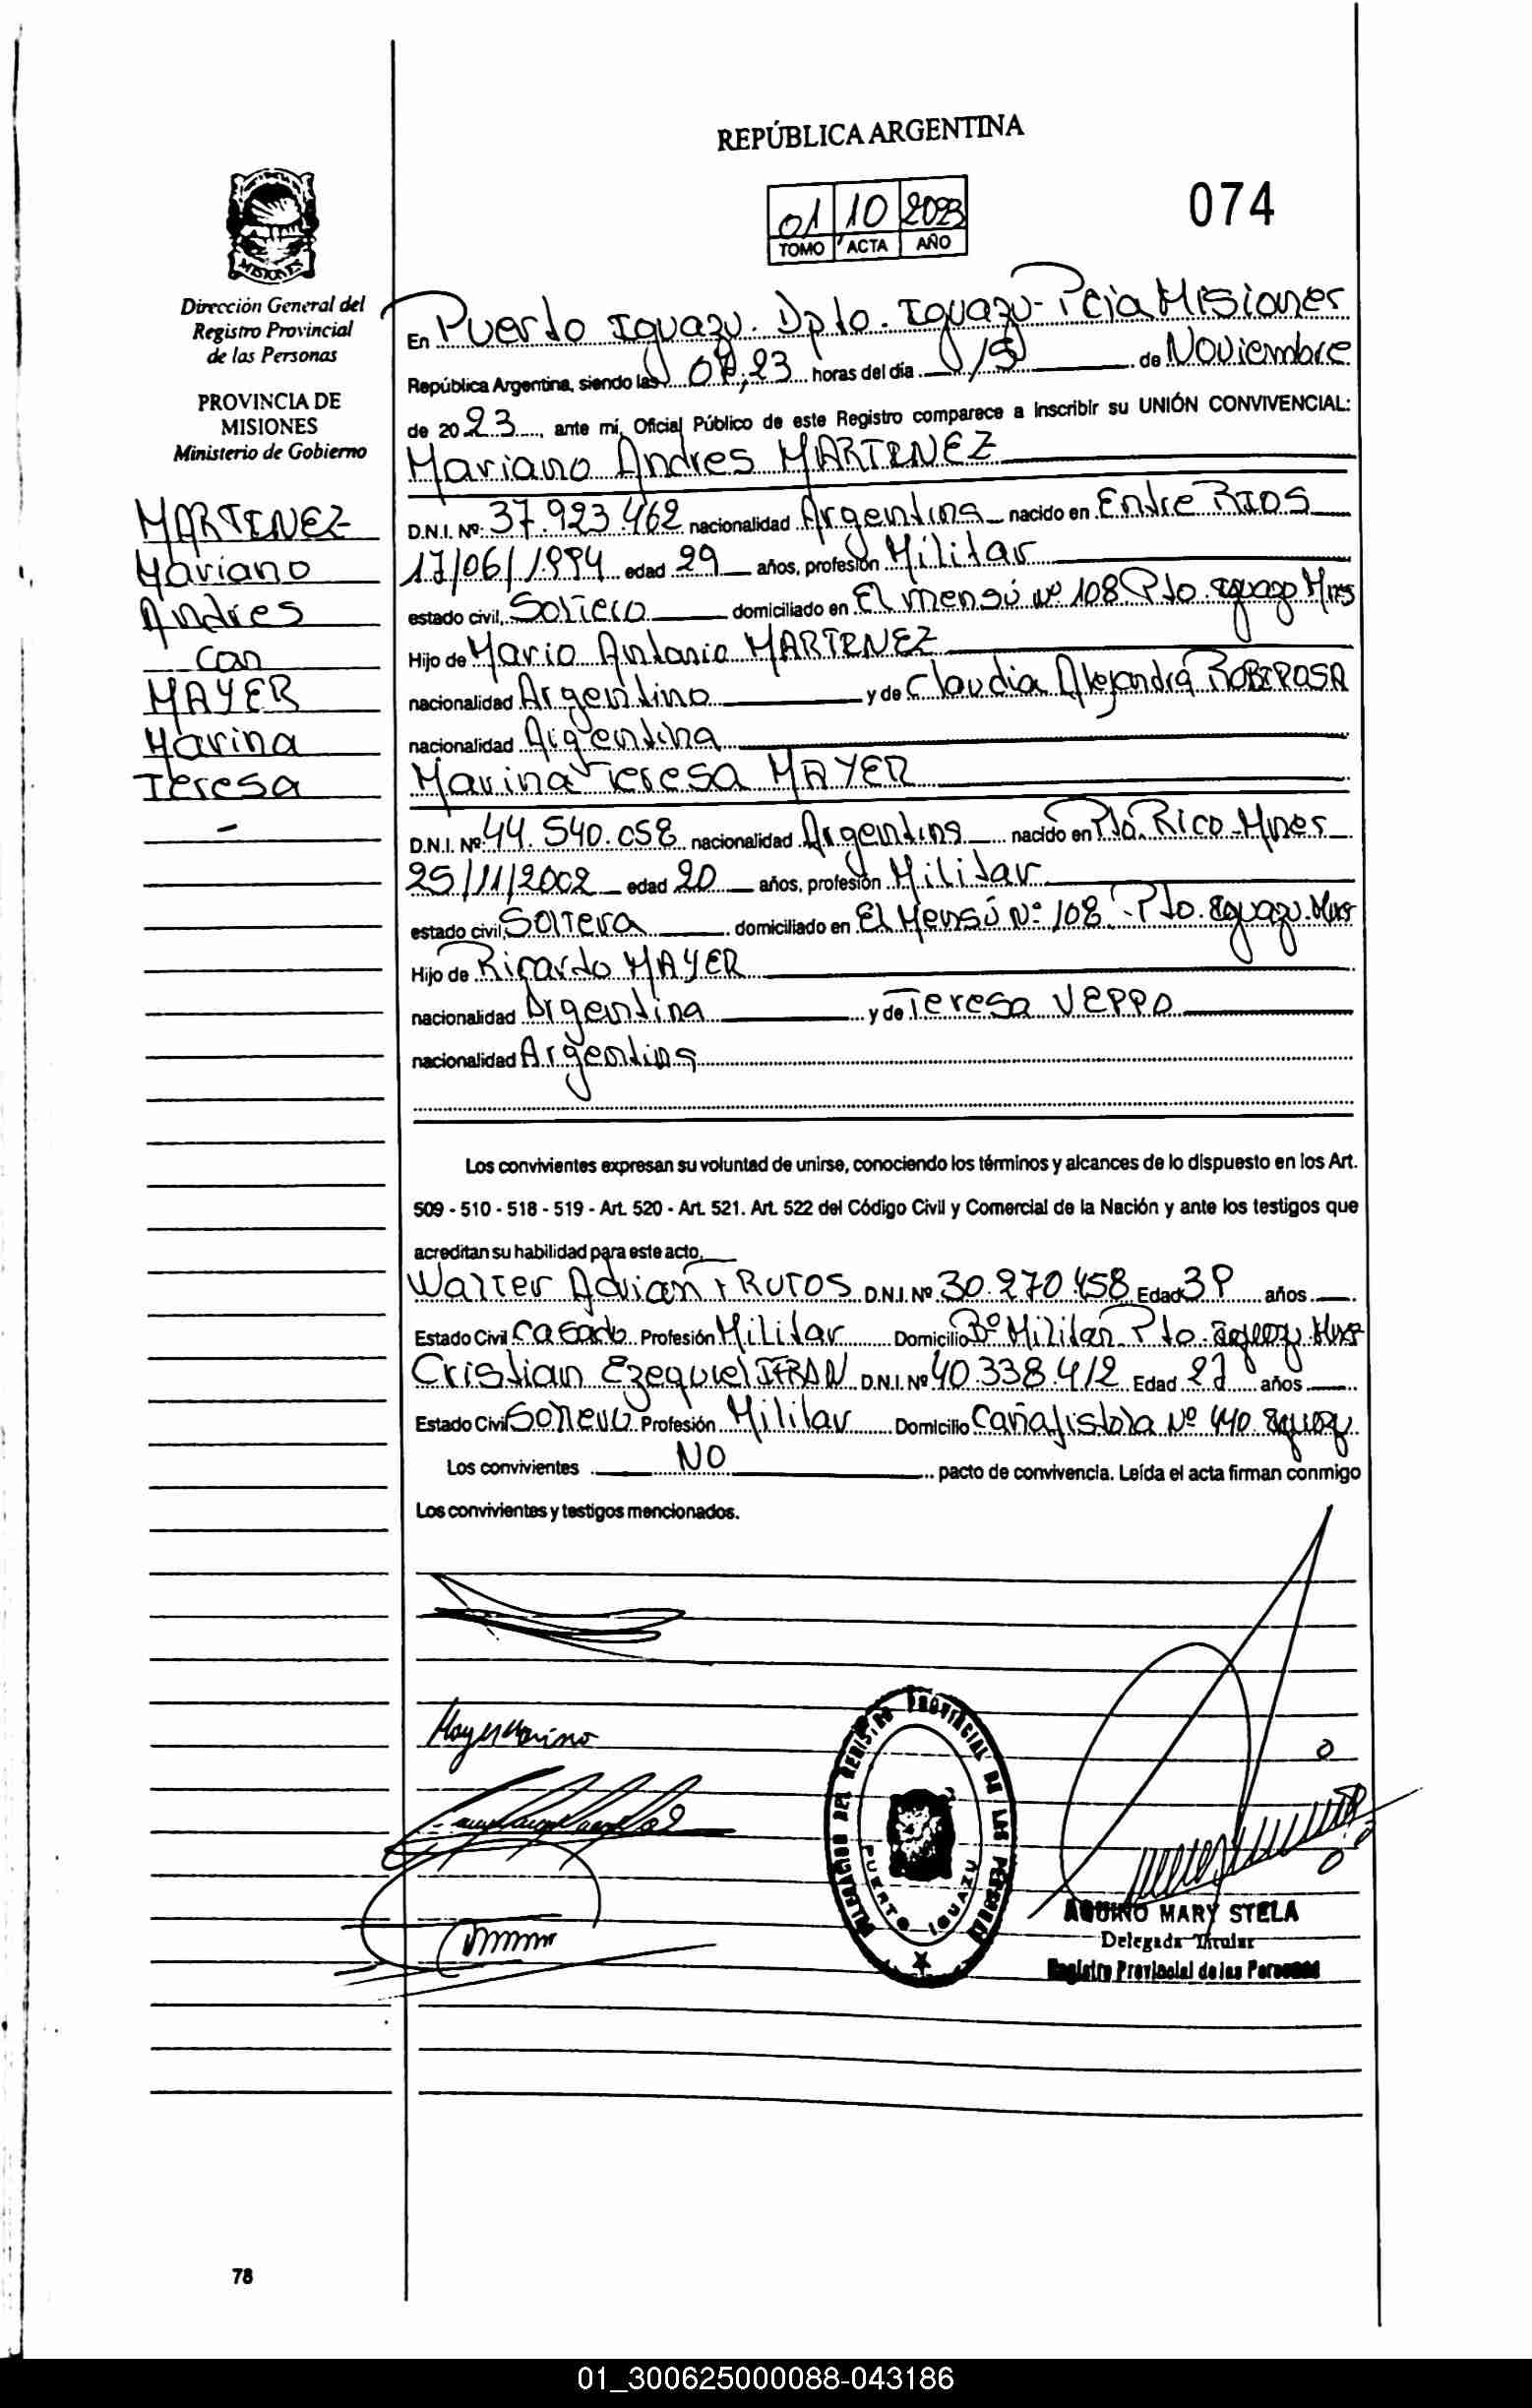 REPÚBLICA ARGENTINA
01 10 2023
TOMO ACTA AÑO
074
MISIONES
Dirección General del
Registro Provincial
de las Personas
PROVINCIA DE
MISIONES
Ministerio de Gobierno
MARTINEZ
Mariano
Andres
Con
MAYER
Marina
Teresa
-
En Puerto Iguazu. Dpto. Iguazu - Pcia Misiones
República Argentina, siendo las horas del día de Noviembre
de 2023, ante mí, Oficial Público de este Registro comparece a inscribir su UNIÓN CONVIVENCIAL:
Mariano Andres MARTINEZ
D.N.I. Nº: 37.923.462 nacionalidad Argentina nacido en Entre RIOS
17/06/1994 edad 29 años, profesión Militar
estado civil, Soltero domiciliado en El mensú Nº 108 Pto. Mnes
Hijo de Mario Antonio MARTINEZ
nacionalidad Argentino y de Claudia Alejandra
nacionalidad Argentina
Marina Teresa MAYER
D.N.I. Nº: 44.540.058 nacionalidad Argentina nacido en Pto. Rico - Mnes
25/11/2002 edad 20 años, profesión Militar
estado civil, Soltera domiciliado en El Mensú Nº 108 - Pto. Iguazu. Mnes
Hijo de Ricardo MAYER
nacionalidad Argentina y de Teresa
nacionalidad Argentina
Los convivientes expresan su voluntad de unirse, conociendo los términos y alcances de lo dispuesto en los Art.
509 - 510 - 518 - 519 - Art. 520 - Art. 521. Art. 522 del Código Civil y Comercial de la Nación y ante los testigos que
acreditan su habilidad para este acto,
Walter Adrian D.N.I. Nº 30.270.458 Edad años
Estado Civil Casado Profesión Militar Domicilio Bº Militar Pto. Iguazu. Mnes
Cristian Ezequiel IFRAN D.N.I. Nº 40.338.412 Edad años
Estado Civil Soltero Profesión Militar Domicilio Cañafistola Nº 440. Iguazu
Los convivientes NO pacto de convivencia. Leída el acta firman conmigo
Los convivientes y testigos mencionados.
Mayer Marina
DELEGACION DEL REGISTRO PROVINCIAL DE LAS PERSONAS
PUERTO IGUAZU
AQUINO MARY STELA
Delegada Titular
Registro Provincial de las Personas
78
01_300625000088-043186